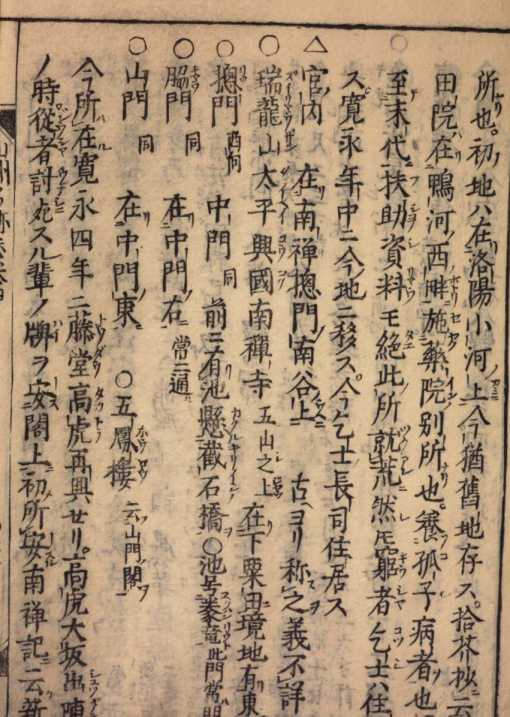 所也。初地ハ在洛陽小河上今猶舊地存ス。拾芥抄ニ云
田院在鴨河西畔施藥院別所也。養孤子病者也
至末代扶助資料モ絶此所就荒然𪜈窮者乞士ハ住
ス寛永年中ニ今地ニ移ス。今乞士長司住居ス
△官内 在南禪揔門南谷上 古ヨリ称之義不詳
○瑞龍山太平興國南禪寺 五山之上 在下粟田境地有東
○揔門 西向 中門 同 前ニ有池懸截石橋○池号 此門常
○脇門 同 在中門右 常ニ通
○山門 同 在中門東 ○五鳳樓 云山門閣
今所在寛永四年ニ藤堂高虎再興せリ。高虎大坂出陣
ノ時從者討死スル輩ノ牌ヲ安閣上初所安南禪記ニ云新